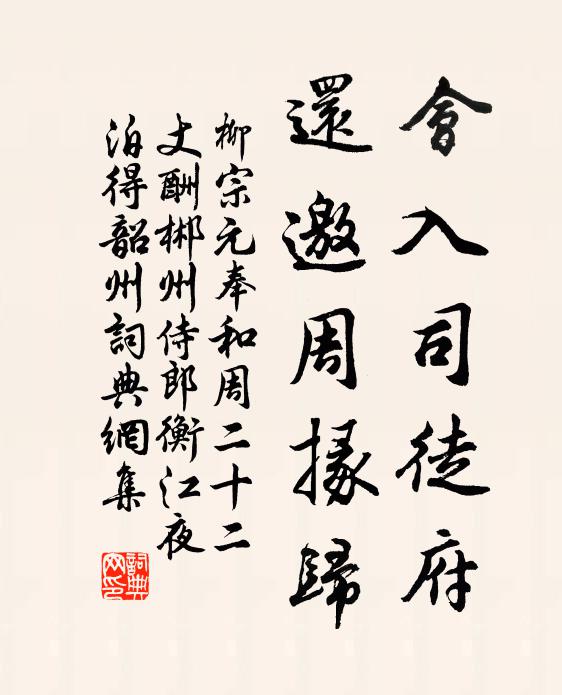 會入司徒府
還邀周掾歸
柳宗元奉和周二十二
丈酬郴州侍郎衡江夜
泊得韶州詞典網集
詞典
网印